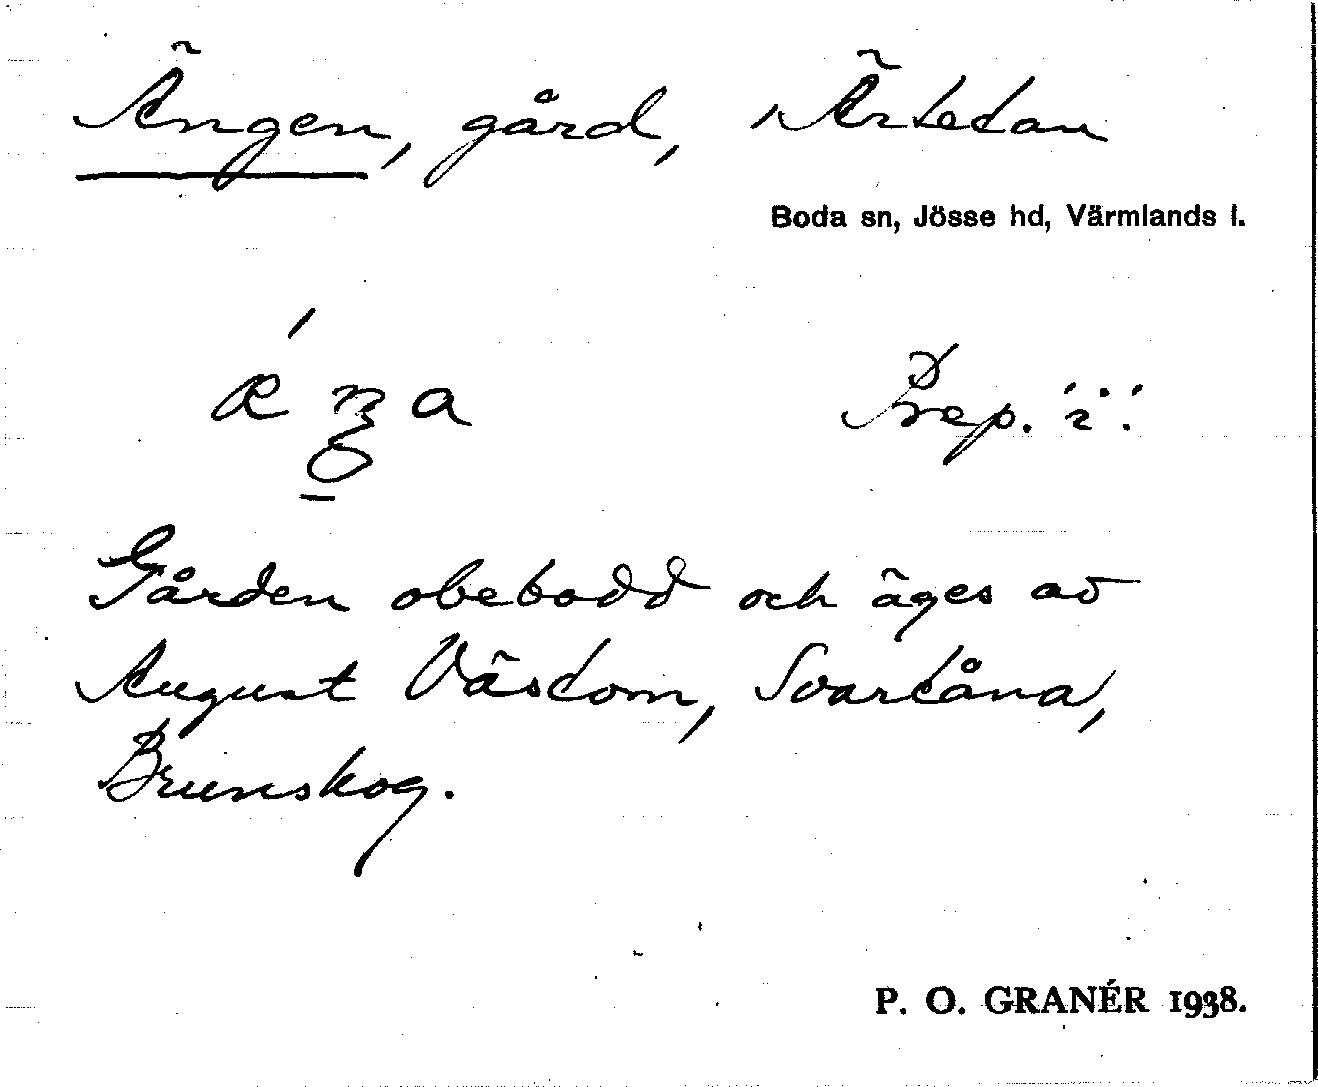 Ängen, gård, i Ärtetan
Boda sn, Jösse hd, Värmlands l.
Prep. 'i'!
Gården obebodd och äges av
August Västom, Svartåna,
Brunskog.
P. O. GRANÉR 1938.